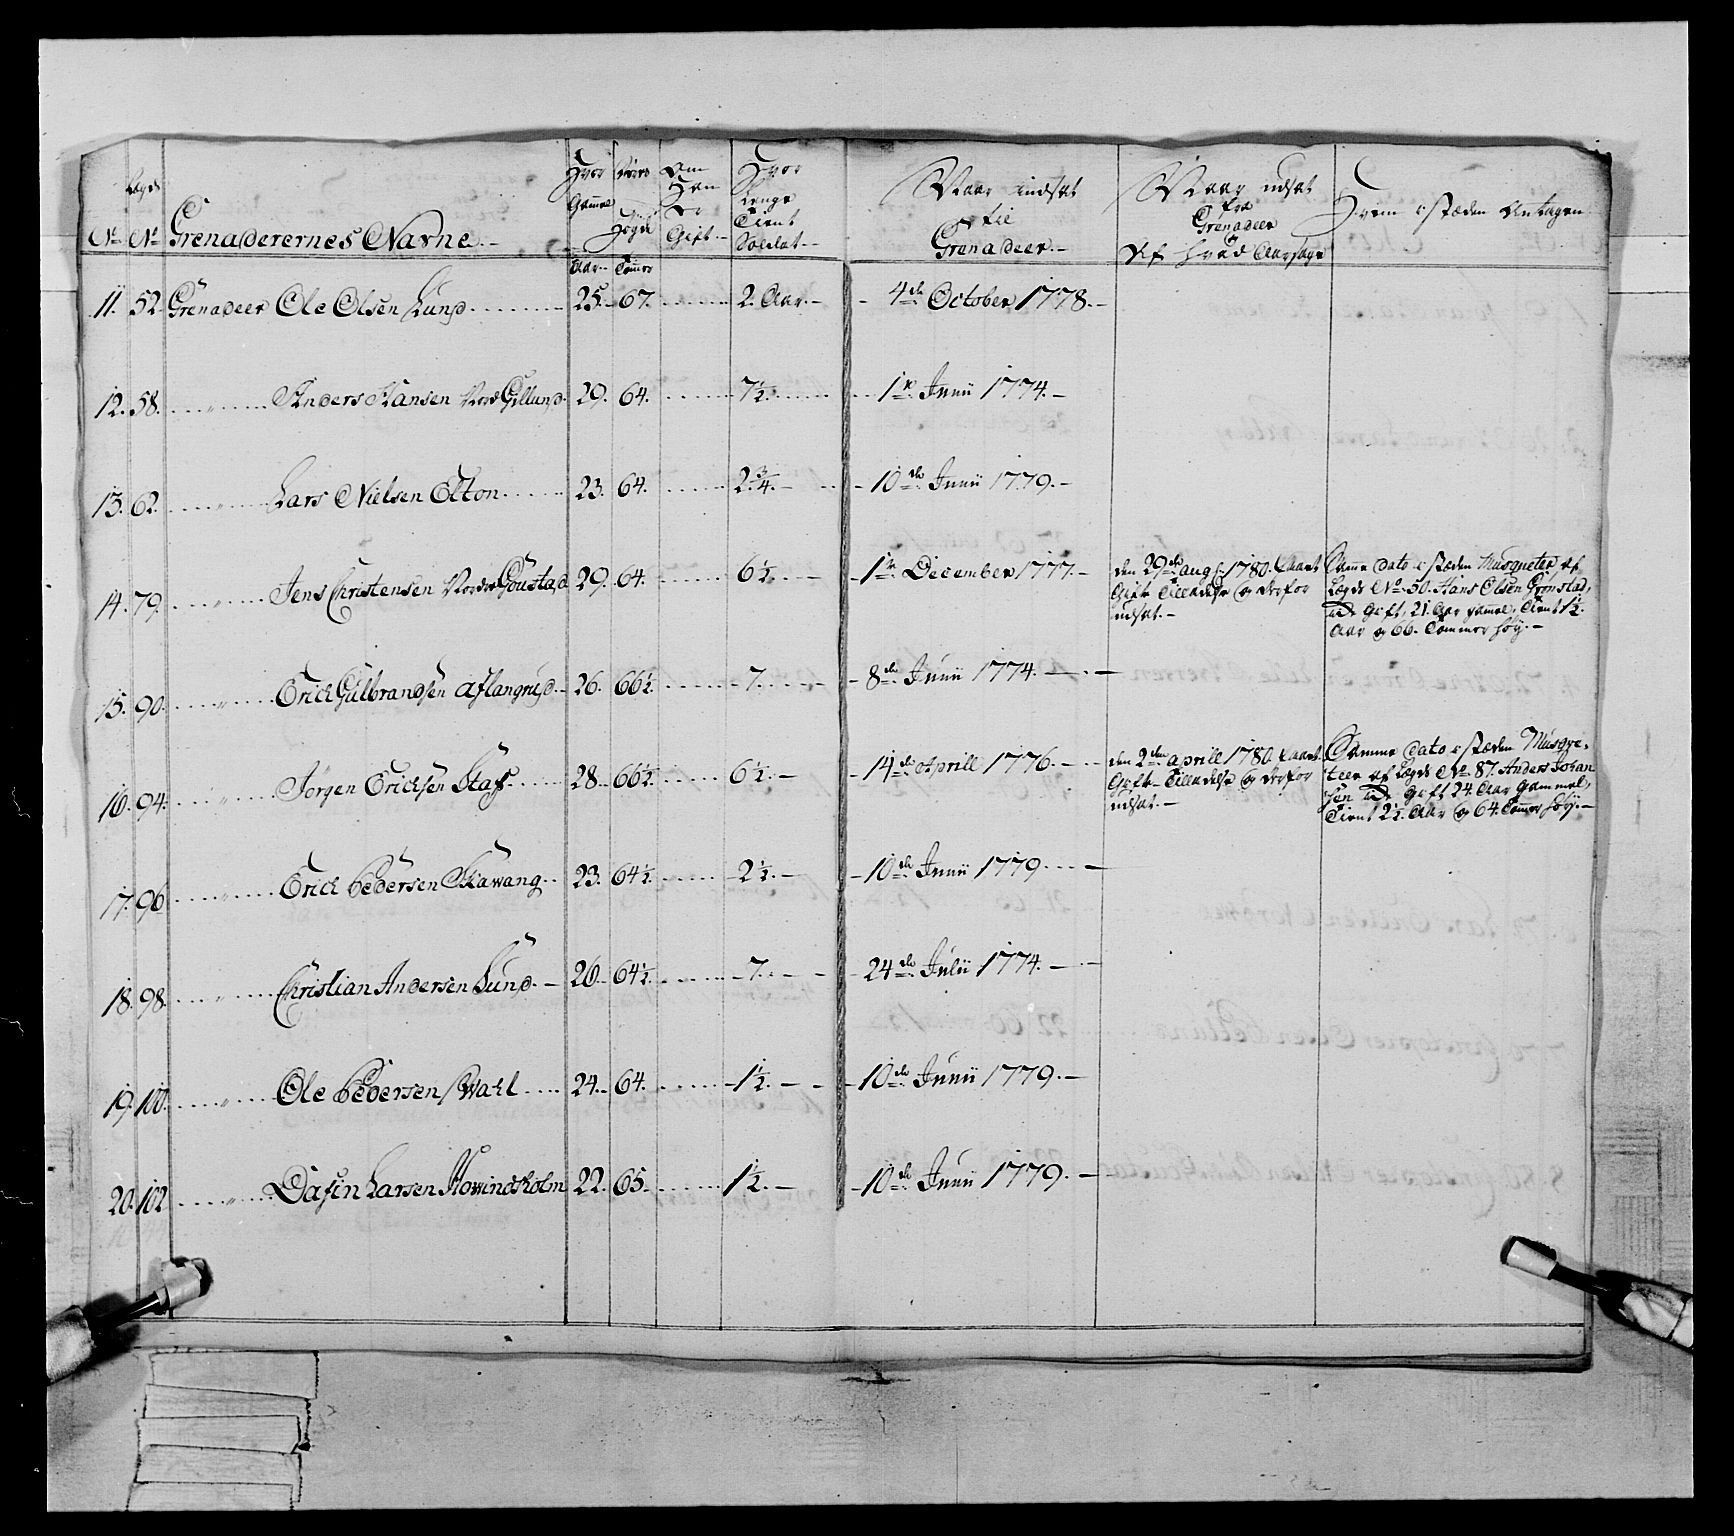 No. Lægds No. Grenaderernes Navne.
Hvor Gammel Aar
Høyde Tommer
Om Han er Gift
Hvor Længe Tient Soldat
Naar indsat til Grenadeer
Naar udsat fra Grenadeer og Af hvad Aarsage
Hvem i stæden Antagen
11. 52. Grenadeer Ole Olsen Lund 25. 67. 2. Aar. 4de October 1778.
12. 58. " Anders Hansen Nord Gillund 29. 64. 7½. 1te Junii 1774.
13. 62. " Lars Nielsen Elton 23. 64. 2¾. 10de Junii 1779.
14. 79. " Jens Christensen Nordre Goustad 29. 64. 6½. 1te December 1777.
den 29de aug. 1780. faaet
Gifte Tilladelse og derfor
udsat.
Samme dato i stæden Musqueter af
Lægds No. 30. Hans Olsen Grønstad,
ude Gift, 21. Aar gamel, Tient 1½.
Aar og 66. Tommer høy.
15. 90. " Erich Gulbrandsen Aslangrud 26. 66½. 7. 8de Junii 1774.
16. 94. " Jørgen Erichsen Staf 28. 66½. 6½. 14de Aprill 1776.
den 2den aprill 1780. faaet
Gifte Tilladelse og derfor
udsat.
Samme dato i stæden Musqve-
teer af Lægds No. 87. Anders Johan
sen ude Gift 24. Aar gammel,
Tient 2½. Aar og 64. Tommer høy.
17. 96. " Erich Pedersen Skawang 23. 64½. 2½. 10de Junii 1779
18. 98. " Christian Andersen Lund. 26. 64½. 7. 24de Julii 1774.
19. 100. " Ole Pedersen Wahl 24. 64. 1½. 10de Junii 1779.
20. 102. " Dafin Larsen Howindsholm 22. 65. 1½. 10de Junii 1779.